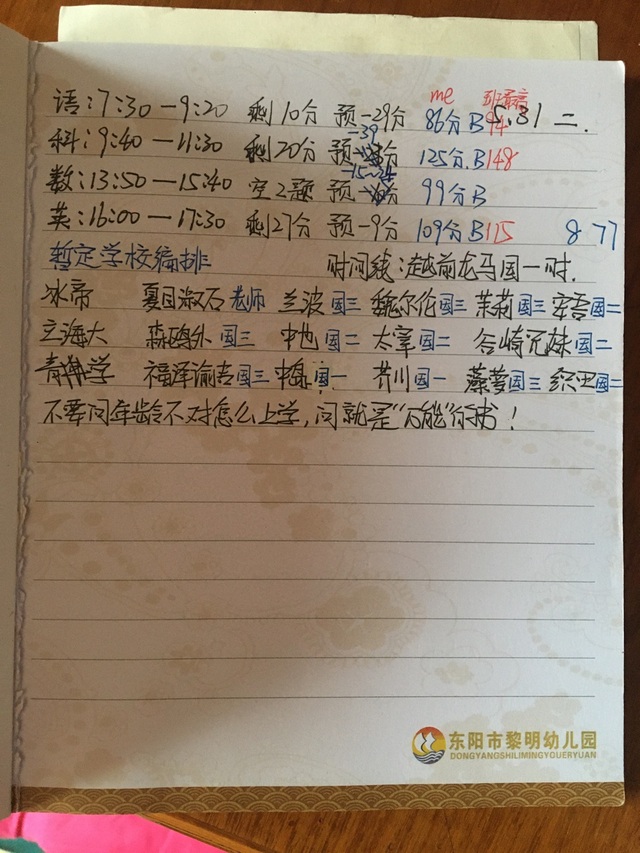 me 班最高
语:7:30—9:20 剩10分 预-29分 86分B 94 5.31 二.
-39
科:9:40—11:30 剩20分 预 分 125分.B 148
-15~-24
数:13:50—15:40 空2题 预 分 99分B
英:16:00—17:30 剩27分 预-9分 109分B 115 8 77
暂定学校编排 时间线:越前龙马国一时.
冰帝 夏目淑石老师 兰波国三 魏尔伦国三 茉莉国三 安吾国二
立海大 森鸥外国三 中也国二 太宰国二 谷崎兄妹国二
青学 福泽谕吉国三 国一 芥川国一 国三 织田国二
不要问年龄不对怎么上学,问就是"万能"的书!
东阳市黎明幼儿园
DONGYANGSHILIMINGYOUERYUAN